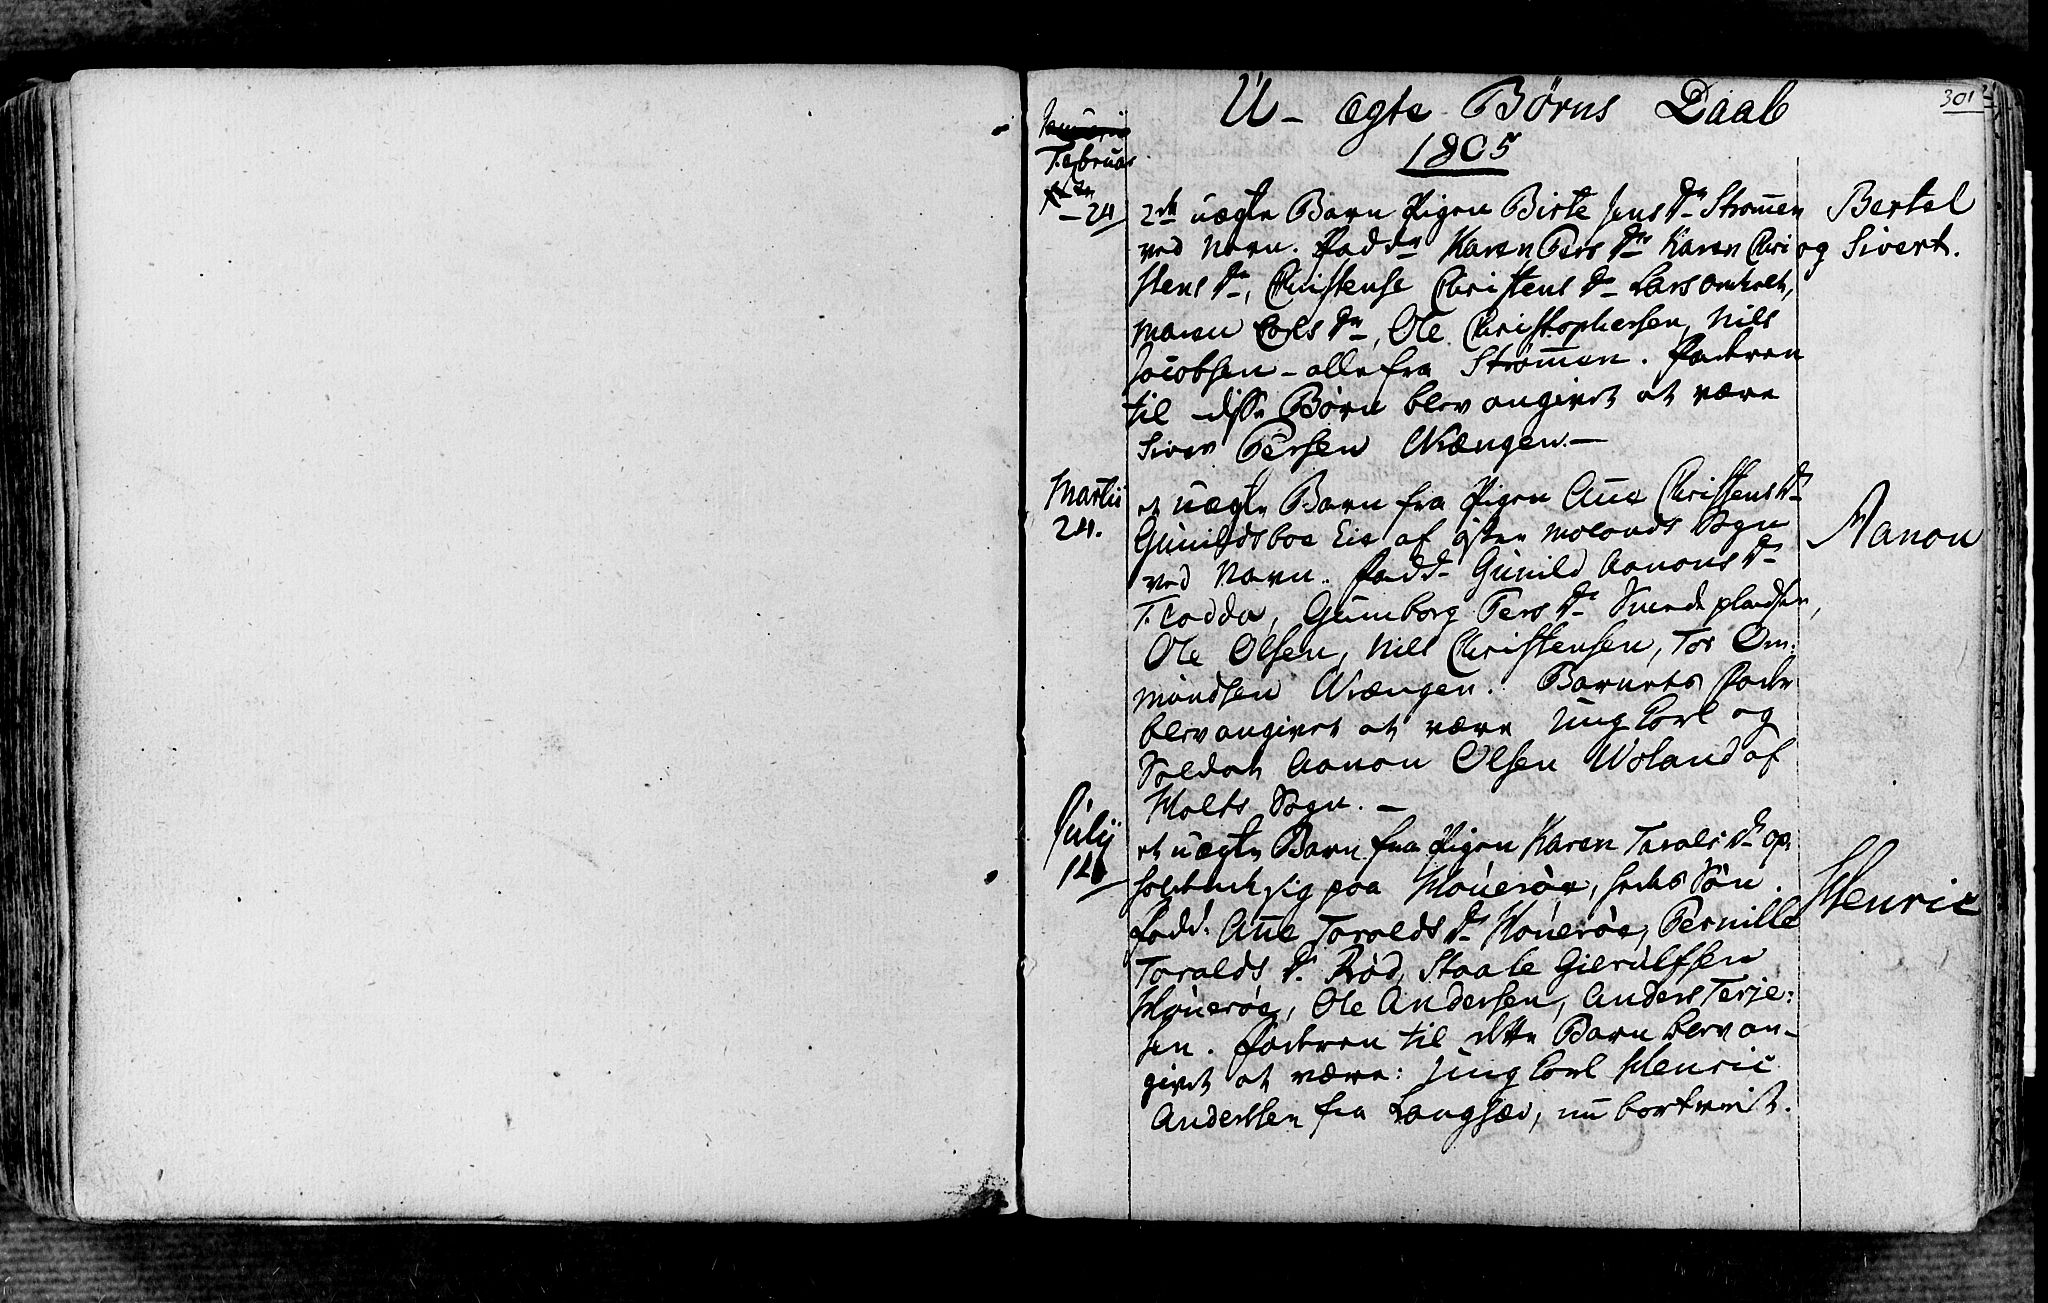 301
U-ægte Børns Daab
1805
Februar
24
2de uægte Børn Pigen Birte Jens Dr Strømmen
Bertel
ved Navn. Fadd: Karen Pers Dr Karen Chri
og Sivert.
stens Dr, Christense Christens Dr Lars
Maren Carls Dr, Ole Christophersen, Nils
Jacobsen - alle fra Strømmen. Faderen
til disse Børn blev angivet at være
Siver Persen Wrængen.-
Martii
24.
et uægte Barn fra Pigen Ane Christens Dr
Gunildsboe Eie af Øster Molands Sogn
Aanon
ved Navn. Fadd- Gunild Aanons Dr
Fladda, Gumborg Pers Dr Smedepladsen,
Ole Olsen, Nils Christensen, Tor Om:
mundsen Wrængen. Barnets Fader
blev angivet at være ung Carl og
Soldat Aanon Olsen Woland af
Holts Sogn. -
Julii
12
et uægte Barn fra Pigen Karen Taralds Dr op:
sig paa Houerøe, Søn.
Henric
Fadd: Ane Taralds Dr Houerøe, Pernille
Taralds Dr Rød, Staale Gierulfsen
Houerøe, Ole Andersen, Anders Terje:
sen. Faderen til dette Barn blev an-
givet at være: ung Carl Henric
Anderssen fra Langsæe, nu bortreist.